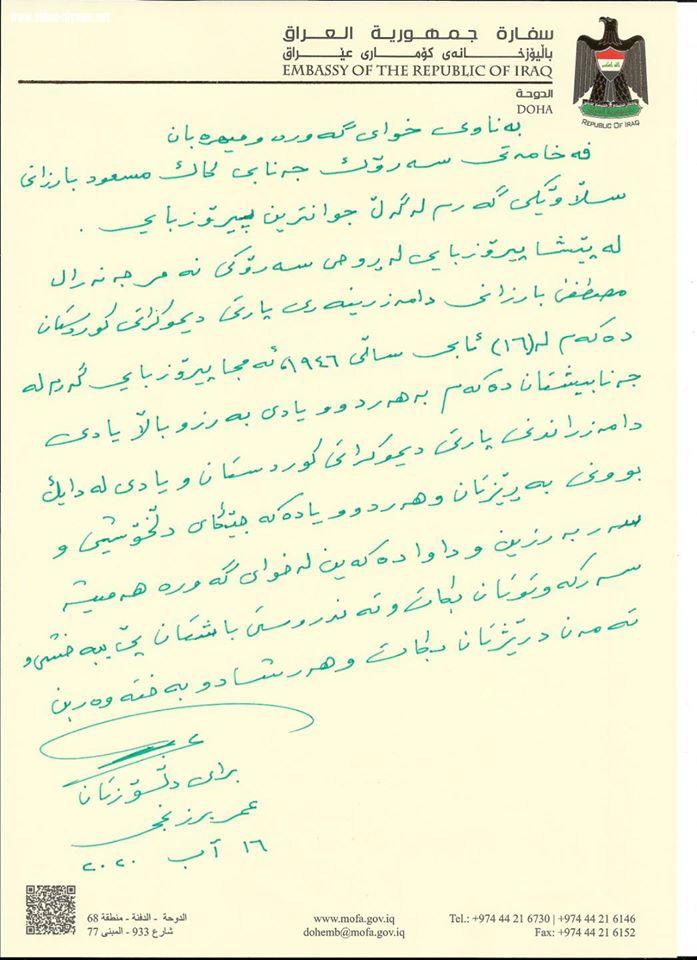 سفارة جمهورية العراق
باڵیۆزخانەی كۆماری عێراق
EMBASSY OF THE REPUBLIC OF IRAQ
الدوحة
DOHA
REPUBLIC OF IRAQ
بەناوی خوای گەورە و میهرەبان
فەخامەتی سەرۆك جەنابی كاك مسعود بارزانی
سڵاوێكی گەرم لەگەڵ جوانترین پیرۆزبایی .
لە پێشا پیرۆزبایی لە ڕوحی سەرۆكی نەمر جەنەرال
مصطفی بارزانی دامەزرینەری پارتی دیموكراتی كوردستان
دەكەم لە (١٦) ئابی ساڵی ١٩٤٦، ئەمجا پیرۆزبایی گەرم لە
جەنابیشتان دەكەم بە هەردوو یادی بەرزو باڵا یادی
دامەزراندنی پارتی دیموكراتی كوردستان و یادی لە دایك
بوونی بەڕێزتان وهەردوو یادەكە جێگای دڵخۆشیی و
سەربەرزین و داوا دەكەین لە خوای گەورە هەمیشە
سەركەوتوتان بكات وتەندروستی باشتان پێ ببەخشێ و
تەمەن درێژتان بكات وهەر شادو بەختەوەر بن
برای دڵسۆزتان
عمر برزنجی
١٦ آب ٢٠٢٠
الدوحة - الدفنة - منطقة 68
شارع 933 - المبنى 77
www.mofa.gov.iq
dohemb@mofa.gov.iq
Tel.: +974 44 21 6730 | +974 44 21 6146
Fax: +974 44 21 6152